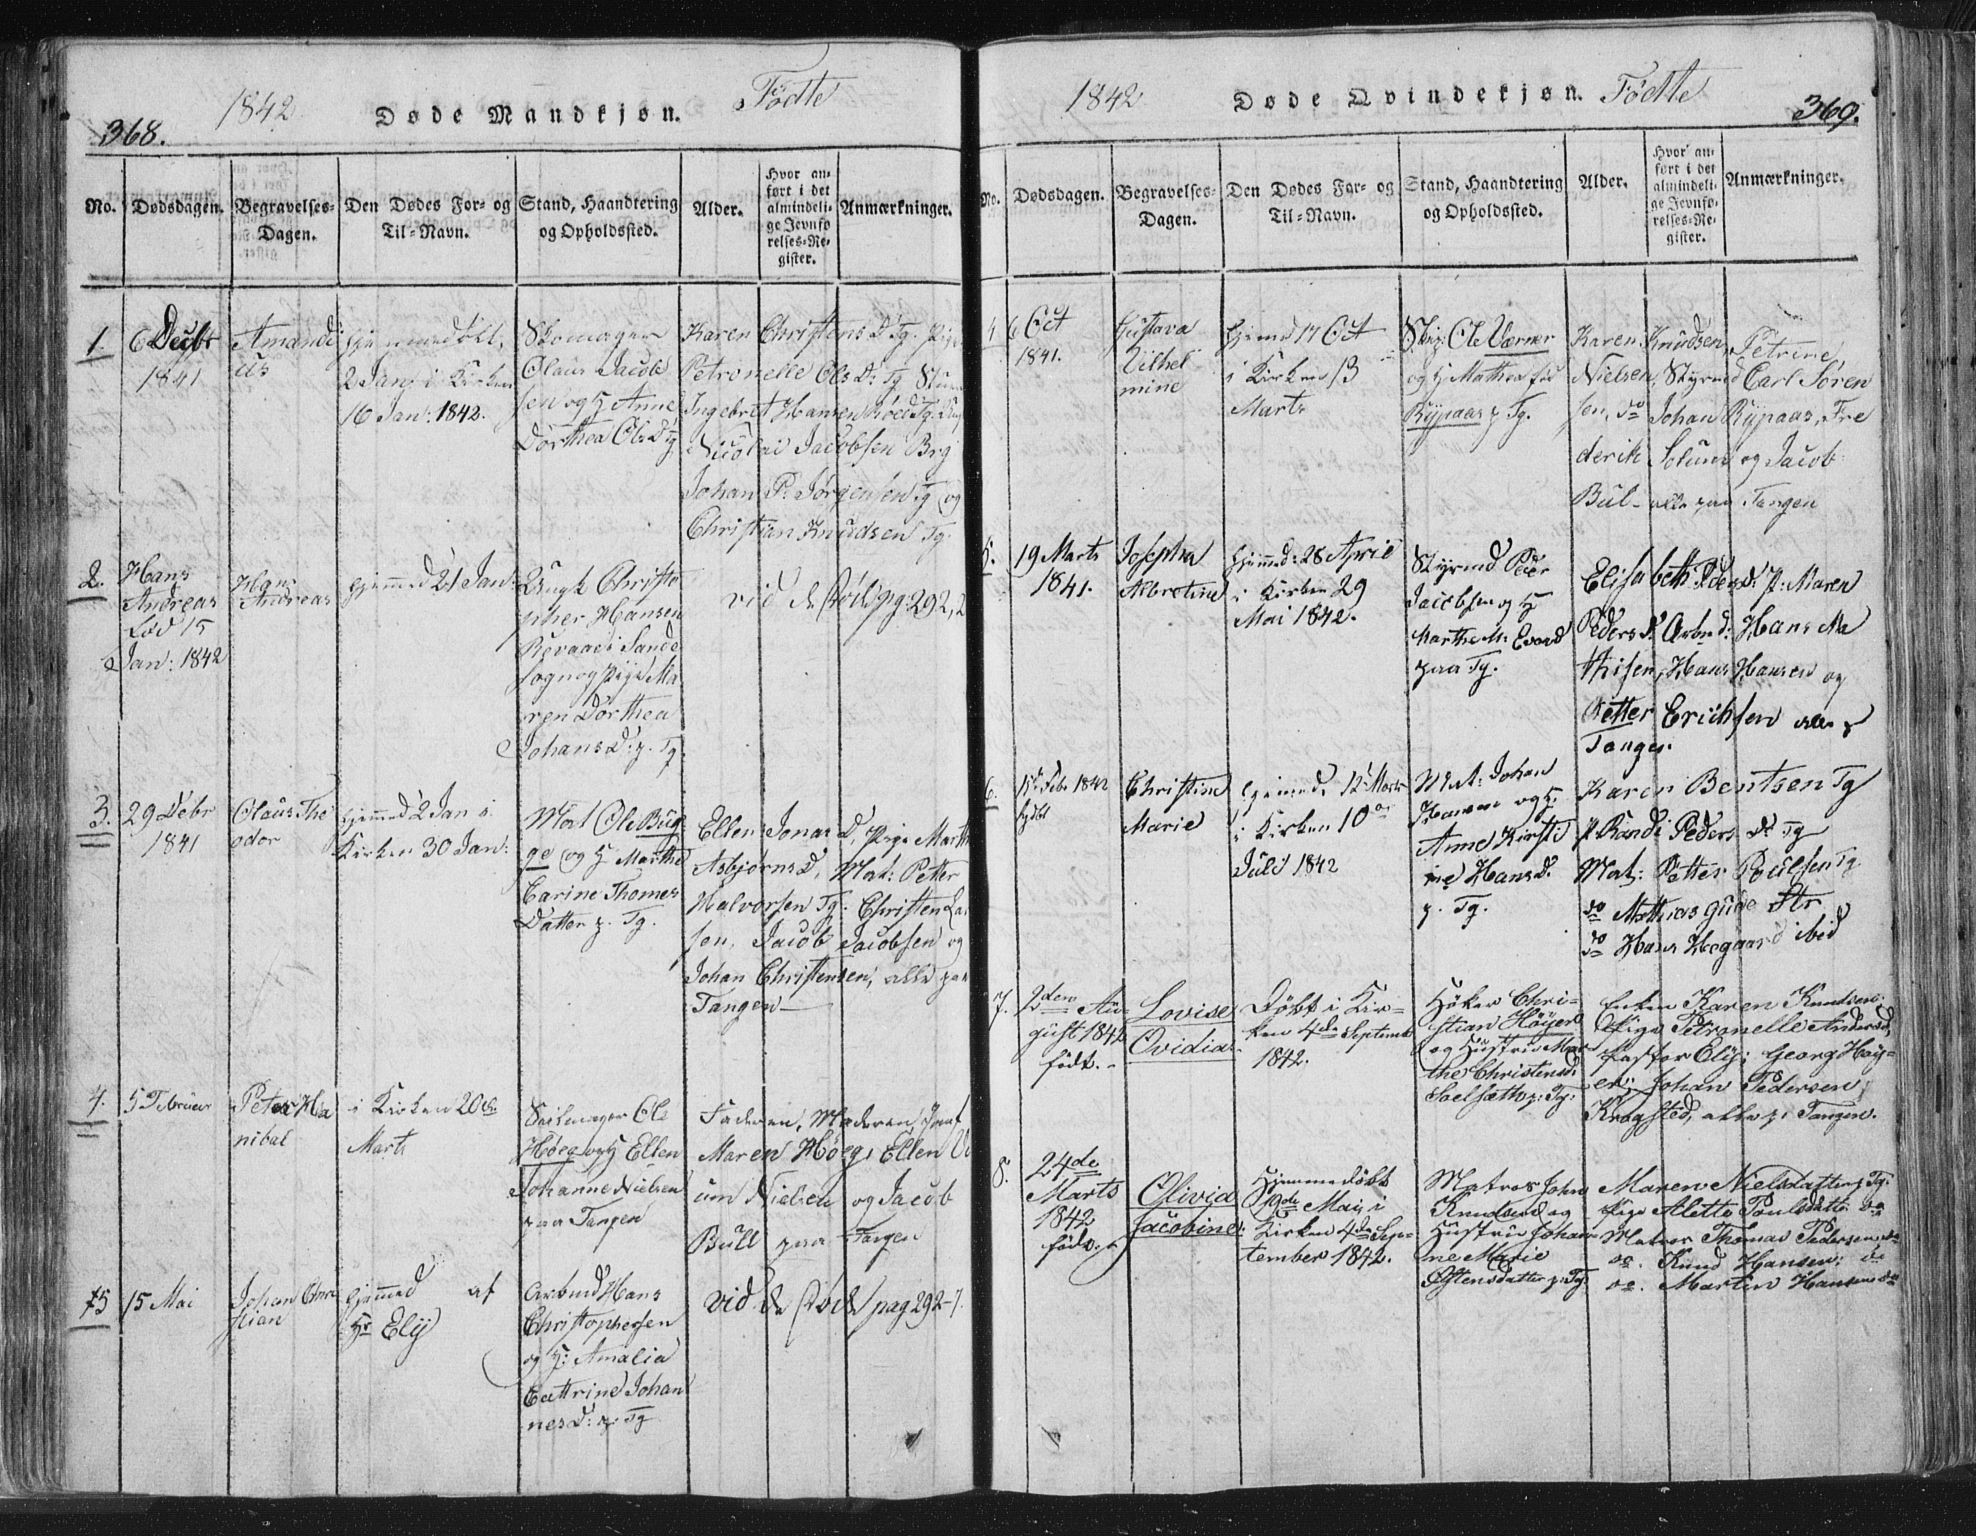 368.
1842
Døde Mandkjøn.
Födte
No.
Dødsdagen.
Begravelses-
Dagen.
Den Dødes For- og
Til-Navn.
Stand, Haandtering
og Opholdssted.
Alder.
Hvor an-
ført i det
almindeli-
ge Jevnfø
relses-Re-
gister.
Anmærkninger.
1.
6 Decbr
1841
Amandi
us
hjemmedöbt,
2 Jan: i Kirken
16 Jan: 1842.
Skomager
Olaus Jacob
sen og H Anne
Dorthea Ols D Tg
Karen Christens D: Tg. Pige
Petronelle Ols D: Tg
Ingebret Hansen Tg.
Nicolai Jacobsen Brg
Johan P. Jörgensen Tg og
Christian Knudsen Tg.
2.
Hans
Andreas
fød 15
Jan: 1842
Hans
Andreas
hjemmed 21 Jan:
Ungk Christo
pher Hansen
Revaae i Sande
sogn og Pige Ma
ren Dorthea
Johans D: p. Tg.
vid de pag: 292, 2
3.
29 Debr
1841
Olaus The
odor
hjemmed 2 Jan i
Kirken 30 Jan:
Mat Ole Bug
ge og H Marthe
Carine Thomes
Datter p. Tg.
Ellen Jonas D, Pige Marthe
Asbjörns D, Mat: Petter
Halvorsen Tg. Christen La
sen, Jacob Jacobsen og
Johan Christensen, alle paa
Tangen
4.
5 Februar
Peter Ha
nibal
i Kirken 20de
Marts
Seilmager Ole
Höeg og H Ellen
Johanne Nielsen
paa Tangen
Faderen, Moderen, Jomf
Maren Höeg, Ellen
um Nielsen og Jacob
Bull paa Tangen
5
15 Mai
Johan Chri
stian
hjemmed af
Hr Elÿ
Arbmd Hans
Christophersen
og H: Amalia
Cattrine Johan
nes D: p. Tg
vid de pag 292-7.
1842
Døde Qvindekjøn.
Födte
369.
No.
Dødsdagen.
Begravelses-
Dagen.
Den Dødes For- og
Til-Navn.
Stand, Haandtering
og Opholdssted.
Alder.
Hvor an-
ført i det
almindeli-
ge Jevnfø-
relses-Re-
gister.
Anmærkninger.
4
6 Oct
1841.
Gustava
Vilhel
mine
hjemd 17 Oct
i Kirken 13
Marts
Skip: Ole Værner
og H Mathea fød
Rÿpaas p Tg.
Karen Knudsen, Petrine
Nielsen, Styrmd Carl Sören
sen, do Johan Rÿpaas, Fre
derik Solum og Jacob
Bul- alle paa Tangen
5.
19 Marts
1841.
Josepha
Albertine
hjemmd: 28 April
i Kirken 29
Mai 1842.
Styrmd Peder
Jacobsen og H
Marthe M: Evard
paa Tg.
Elisabeth Peders D: P: Maren
Peders D Arbmd: Hans Ma
thisen, Hans Hansen og
Petter Erichsen alle p
Tangen.
6.
15 Febr 1842
født
Christine
Marie
hjemmed 12 Marts
i Kirken 10de
Juli 1842
Mat: Johan
Hansen og H:
Anne Kirsti
ne Hans D.
p. Tg.
Karen Bentsen Tg
P. Randi Peders D: Tg
Mat: Petter Poulsen Tg.
do Mathias Gude Str
do Hans Hegaard ibid
7.
2den Au-
gust 1842
født.-
Lovise
Ovidia
Döbt i Kir-
ken 4de Septembr
1842.
Höker Chri-
stian Höyer
og Hustrue Mar-
the Christensd:
Saelsætt p. Tg.
Enken Karen Knudsen:
Pige Petronelle Andersd,
Pastor Elÿ; Georg Höy-
er; Johan Pedersen
Kragsted, alle p: Tangen.
8.
24de
Marts
1842
född.
Olivia
Jacobine:
Hjemmedöbt
19de Mai, i
Kirken 4de Sep-
tember 1842.
Matros John
Knudsen og
Hustrue Johan-
ne Marie
Østensdatter p: Tg.
Maren Nielsdatter p Tg:
Pige Aletta Poulsdatt: do
Matros Thomas Pedersen do
do. Knud Hansen: do
do. Martin Hansen do